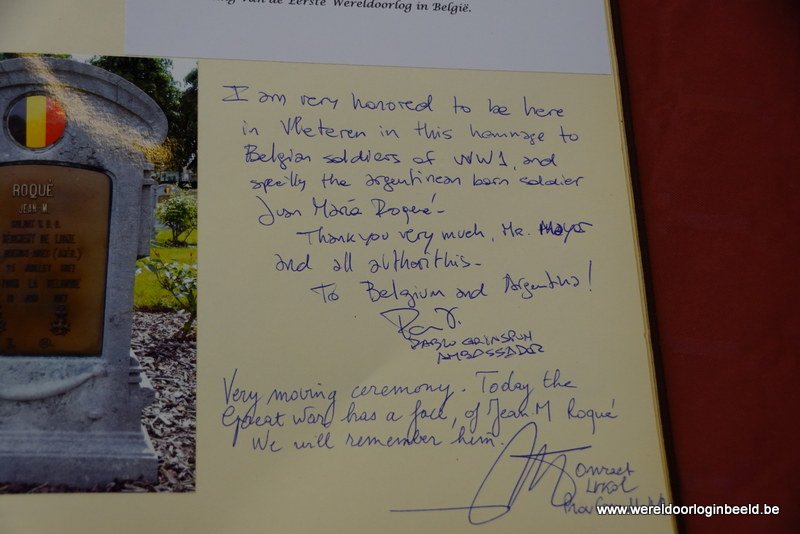 van de Eerste Wereldoorlog in België.
I am very honored to be here
in Vleteren in this hommage to
Belgian soldiers of WW1, and
specilly the argentinean born soldier
Juan María Roqué-
Thank you very much, Mr. Mayor
and all authorithis-
To Belgium and Argentina!
PABLO GRINSPUN
AMBASSADOR
Very moving ceremony. Today the
Great War has a face, of Jean M Roqué
We will remember him.
ROQUÉ
JEAN-M.
www.wereldoorloginbeeld.be